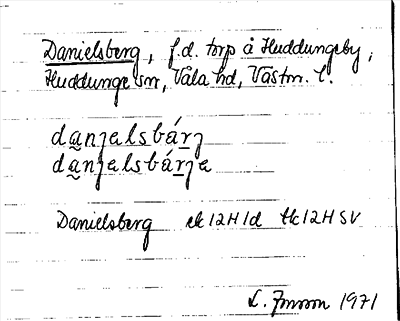 Danielsberg, f.d. torp å Huddungeby,
Huddunge sn, Våla hd, Västm. l.
da̰nɟɐlsbárɟ
da̰nɟɐlsbárɟɐ
Danielsberg ek 12H1d tk 12H SV
L. Jonsson 1971